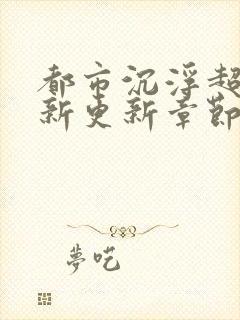 都市沉浮超
新更新章節
夢吃